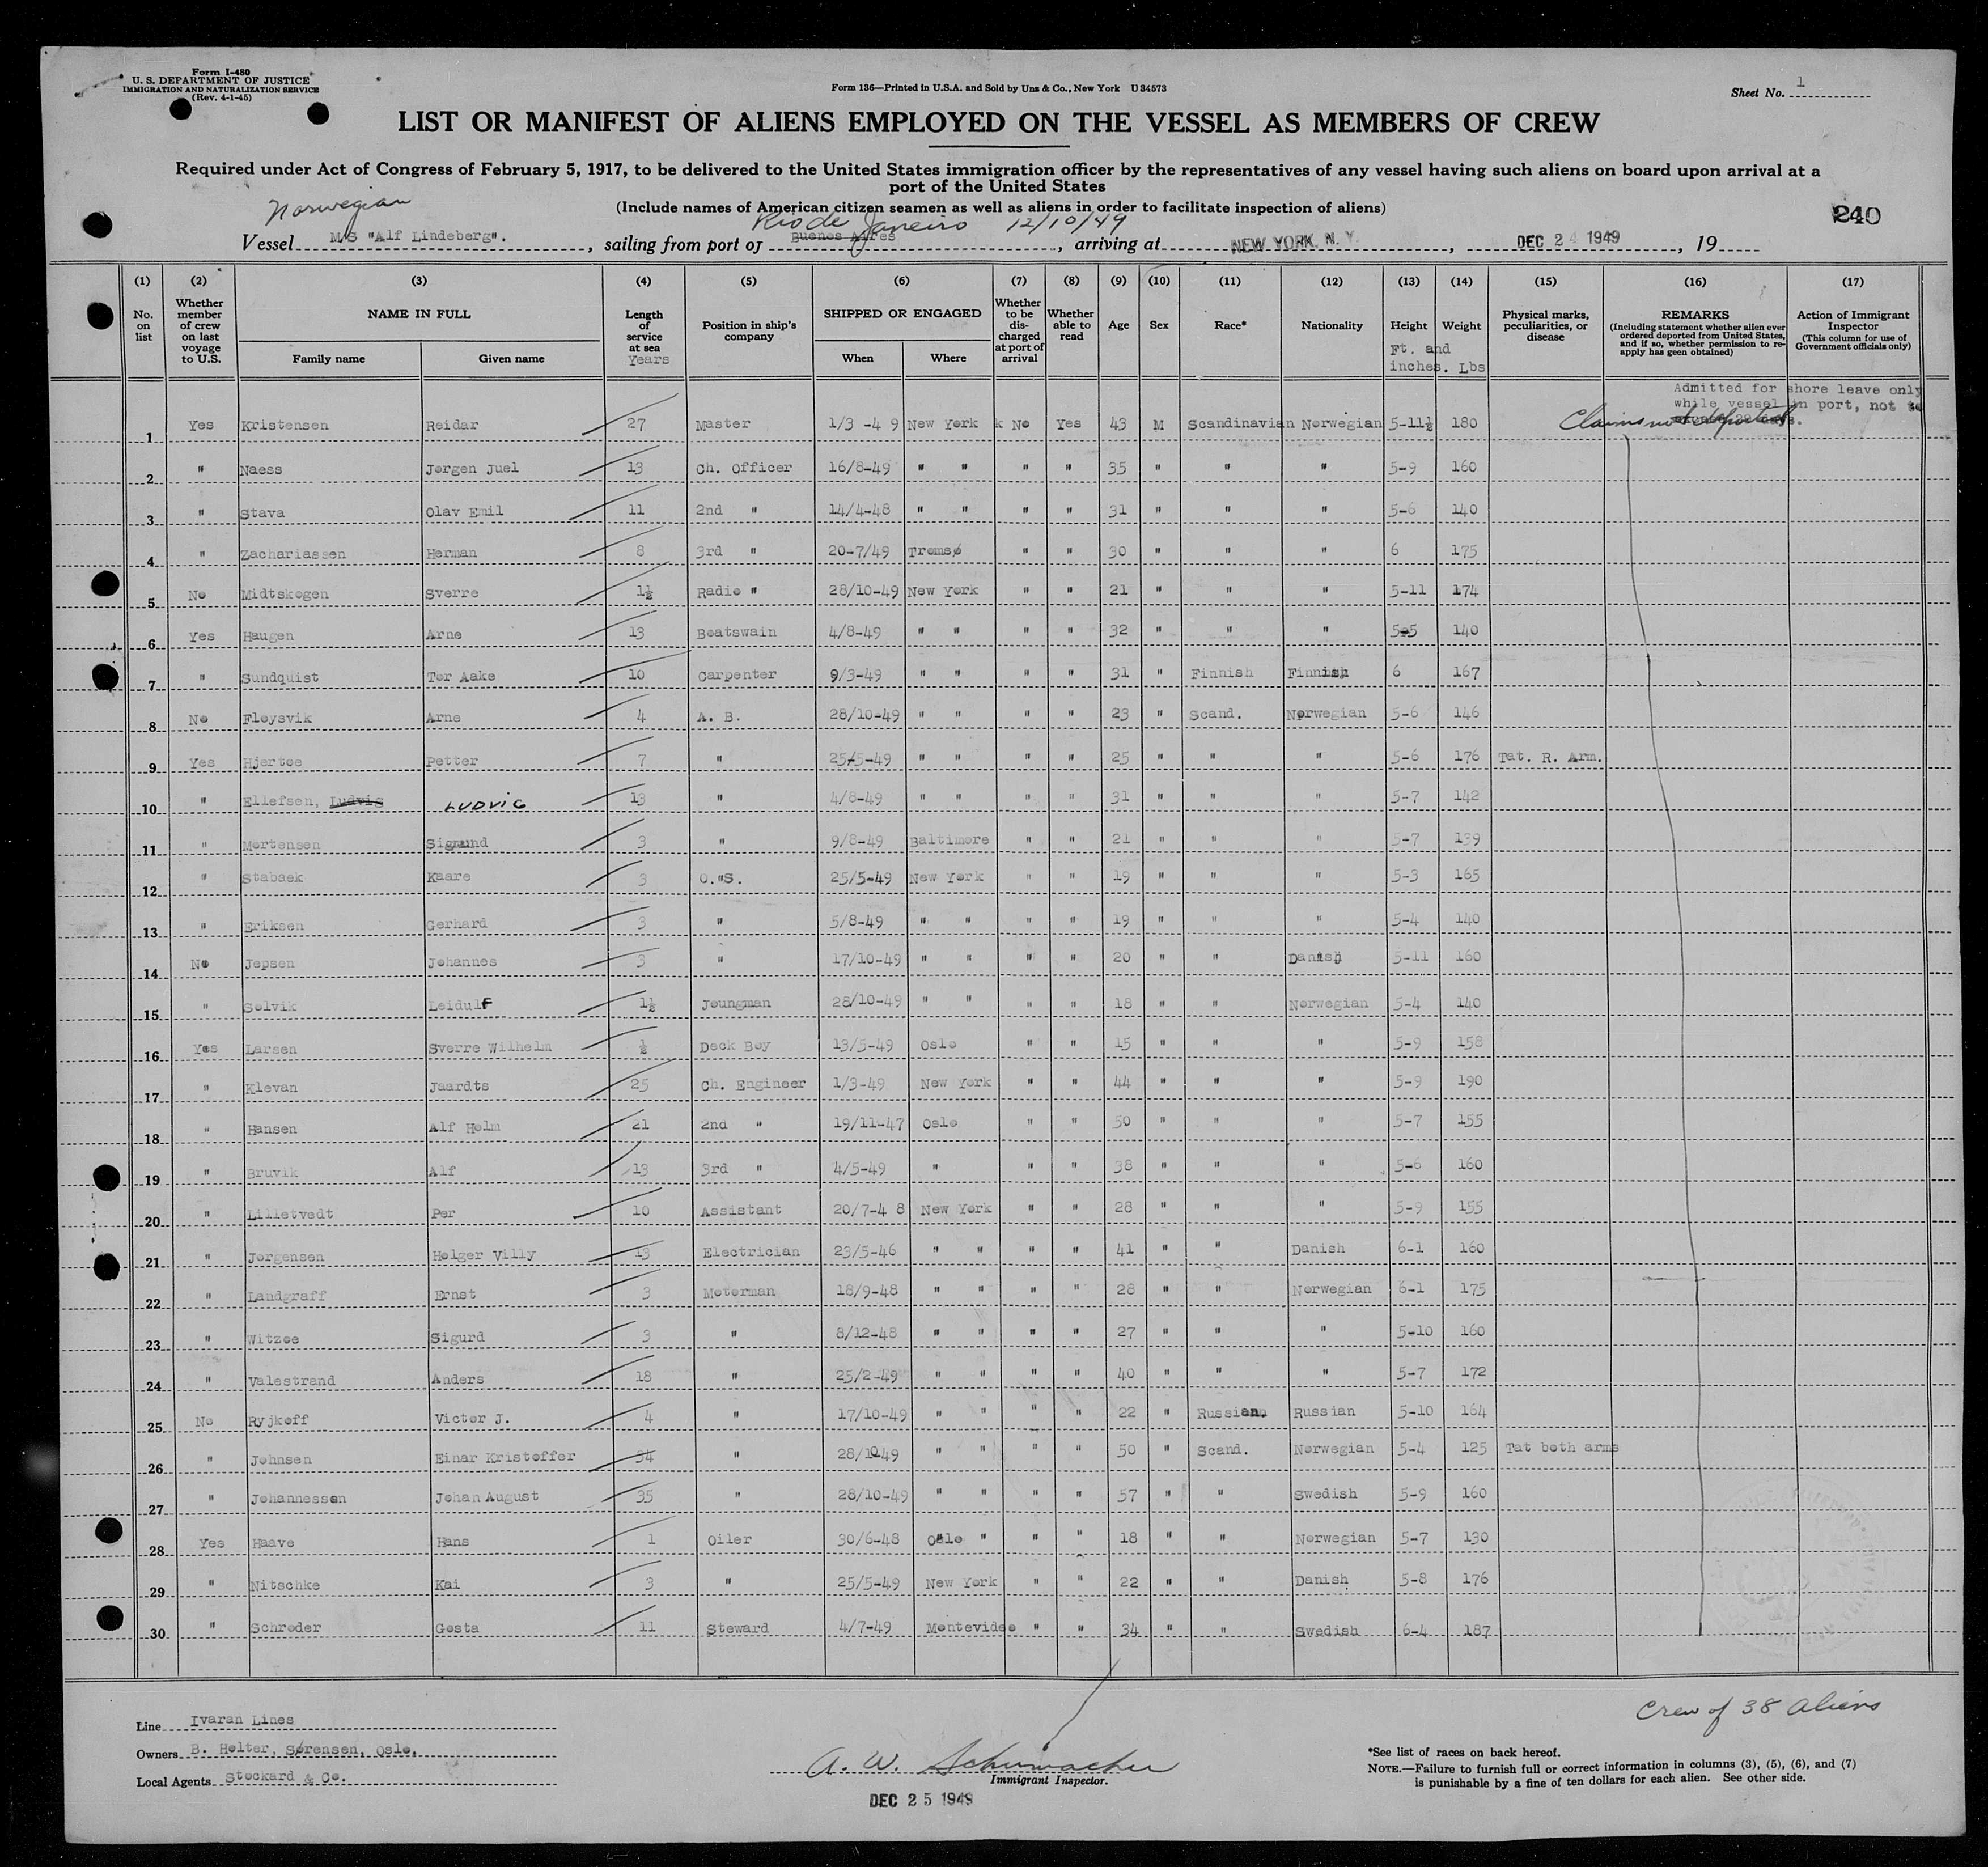 Form I-480
U. S. DEPARTMENT OF JUSTICE
IMMIGRATION AND NATURALIZATION SERVICE
(Rev. 4-1-45)
Form 136—Printed in U.S.A. and Sold by Unz & Co., New York U 34573
Sheet No. 1
LIST OR MANIFEST OF ALIENS EMPLOYED ON THE VESSEL AS MEMBERS OF CREW
Required under Act of Congress of February 5, 1917, to be delivered to the United States immigration officer by the representatives of any vessel having such aliens on board upon arrival at a
port of the United States
(Include names of American citizen seamen as well as aliens in order to facilitate inspection of aliens)
Norwegian
Rio de Janeiro 12/10/49
240
Vessel M/S "Alf Lindeberg". , sailing from port of Buenos Aires , arriving at NEW YORK, N. Y. , DEC 24 1949 , 19
(1) (2) (3) (4) (5) (6) (7) (8) (9) (10) (11) (12) (13) (14) (15) (16) (17)
No. on list
Whether member of crew on last voyage to U.S.
NAME IN FULL
Family name Given name
Length of service at sea
Years
Position in ship's company
SHIPPED OR ENGAGED
When Where
Whether to be discharged at port of arrival
Whether able to read
Age
Sex
Race*
Nationality
Height
Ft. and inches.
Weight
Lbs
Physical marks, peculiarities, or disease
REMARKS
(Including statement whether alien ever ordered deported from United States, and if so, whether permission to reapply has geen obtained)
Action of Immigrant Inspector
(This column for use of Government officials only)
Admitted for shore leave only
while vessel in port, not to
Claims not deported
1 Yes Kristensen Reidar 27 Master 1/3 -4 9 New York No Yes 43 M Scandinavian Norwegian 5-11½ 180
2 " Naess Jørgen Juel 13 Ch. Officer 16/8-49 " " " " 35 " " " 5-9 160
3 " Stava Olav Emil 11 2nd " 14/4-48 " " " " 31 " " " 5-6 140
4 " Zachariassen Herman 8 3rd " 20-7/49 Tromsø " " 30 " " " 6 175
5 No Midtskogen Sverre 1½ Radio " 28/10-49 New York " " 21 " " " 5-11 174
6 Yes Haugen Arne 13 Boatswain 4/8-49 " " " " 32 " " " 5-5 140
7 " Sundquist Tor Aake 10 Carpenter 9/3-49 " " " " 31 " Finnish Finnish 6 167
8 No Fløysvik Arne 4 A. B. 28/10-49 " " " " 23 " Scand. Norwegian 5-6 146
9 Yes Hjertoe Petter 7 " 25/5-49 " " " " 25 " " " 5-6 176 Tat. R. Arm.
10 " Ellefsen, Ludvig LUDVIG 13 " 4/8-49 " " " " 31 " " " 5-7 142
11 " Mortensen Sigmund 3 " 9/8-49 Baltimore " " 21 " " " 5-7 139
12 " Stabaek Kaare 3 O."S. 25/5-49 New York " " 19 " " " 5-3 165
13 " Eriksen Gerhard 3 " 5/8-49 " " " " 19 " " " 5-4 140
14 No Jepsen Johannes 3 " 17/10-49 " " " " 20 " " Danish 5-11 160
15 " Solvik Leidulf 1½ Joungman 28/10-49 " " " " 18 " " Norwegian 5-4 140
16 Yes Larsen Sverre Wilhelm ½ Deck Boy 13/5-49 Oslo " " 15 " " " 5-9 158
17 " Klevan Jaardts 25 Ch. Engineer 1/3-49 New York " " 44 " " " 5-9 190
18 " Hansen Alf Holm 21 2nd " 19/11-47 Oslo " " 50 " " " 5-7 155
19 " Bruvik Alf 13 3rd " 4/5-49 " " " 38 " " " 5-6 160
20 " Lilletvedt Per 10 Assistant 20/7-4 8 New York " " 28 " " " 5-9 155
21 " Jorgensen Holger Villy 13 Electrician 23/5-46 " " " " 41 " " Danish 6-1 160
22 " Landgraff Ernst 3 Motorman 18/9-48 " " " " 28 " " Norwegian 6-1 175
23 " Witzoe Sigurd 3 " 8/12-48 " " " " 27 " " " 5-10 160
24 " Valestrand Anders 18 " 25/2-49 " " " " 40 " " " 5-7 172
25 No Ryjkoff Victor J. 4 " 17/10-49 " " " " 22 " Russian Russian 5-10 164
26 " Johnsen Einar Kristoffer 34 " 28/10-49 " " " " 50 " Scand. Norwegian 5-4 125 Tat both arms
27 " Johannessen Johan August 35 " 28/10-49 " " " " 57 " " Swedish 5-9 160
28 Yes Haave Hans 1 Oiler 30/6-48 Oslo " " " 18 " " Norwegian 5-7 130
29 " Nitschke Kai 3 " 25/5-49 New York " " 22 " " Danish 5-8 176
30 " Schroder Gosta 11 Steward 4/7-49 Montevideo " " 34 " " Swedish 6-4 187
Crew of 38 aliens
Line Ivaran Lines
Owners B. Holter, Sørensen, Oslo.
Local Agents Stockard & Co.
A. W. Schumacher
Immigrant Inspector.
DEC 25 1949
*See list of races on back hereof.
NOTE.—Failure to furnish full or correct information in columns (3), (5), (6), and (7)
is punishable by a fine of ten dollars for each alien. See other side.